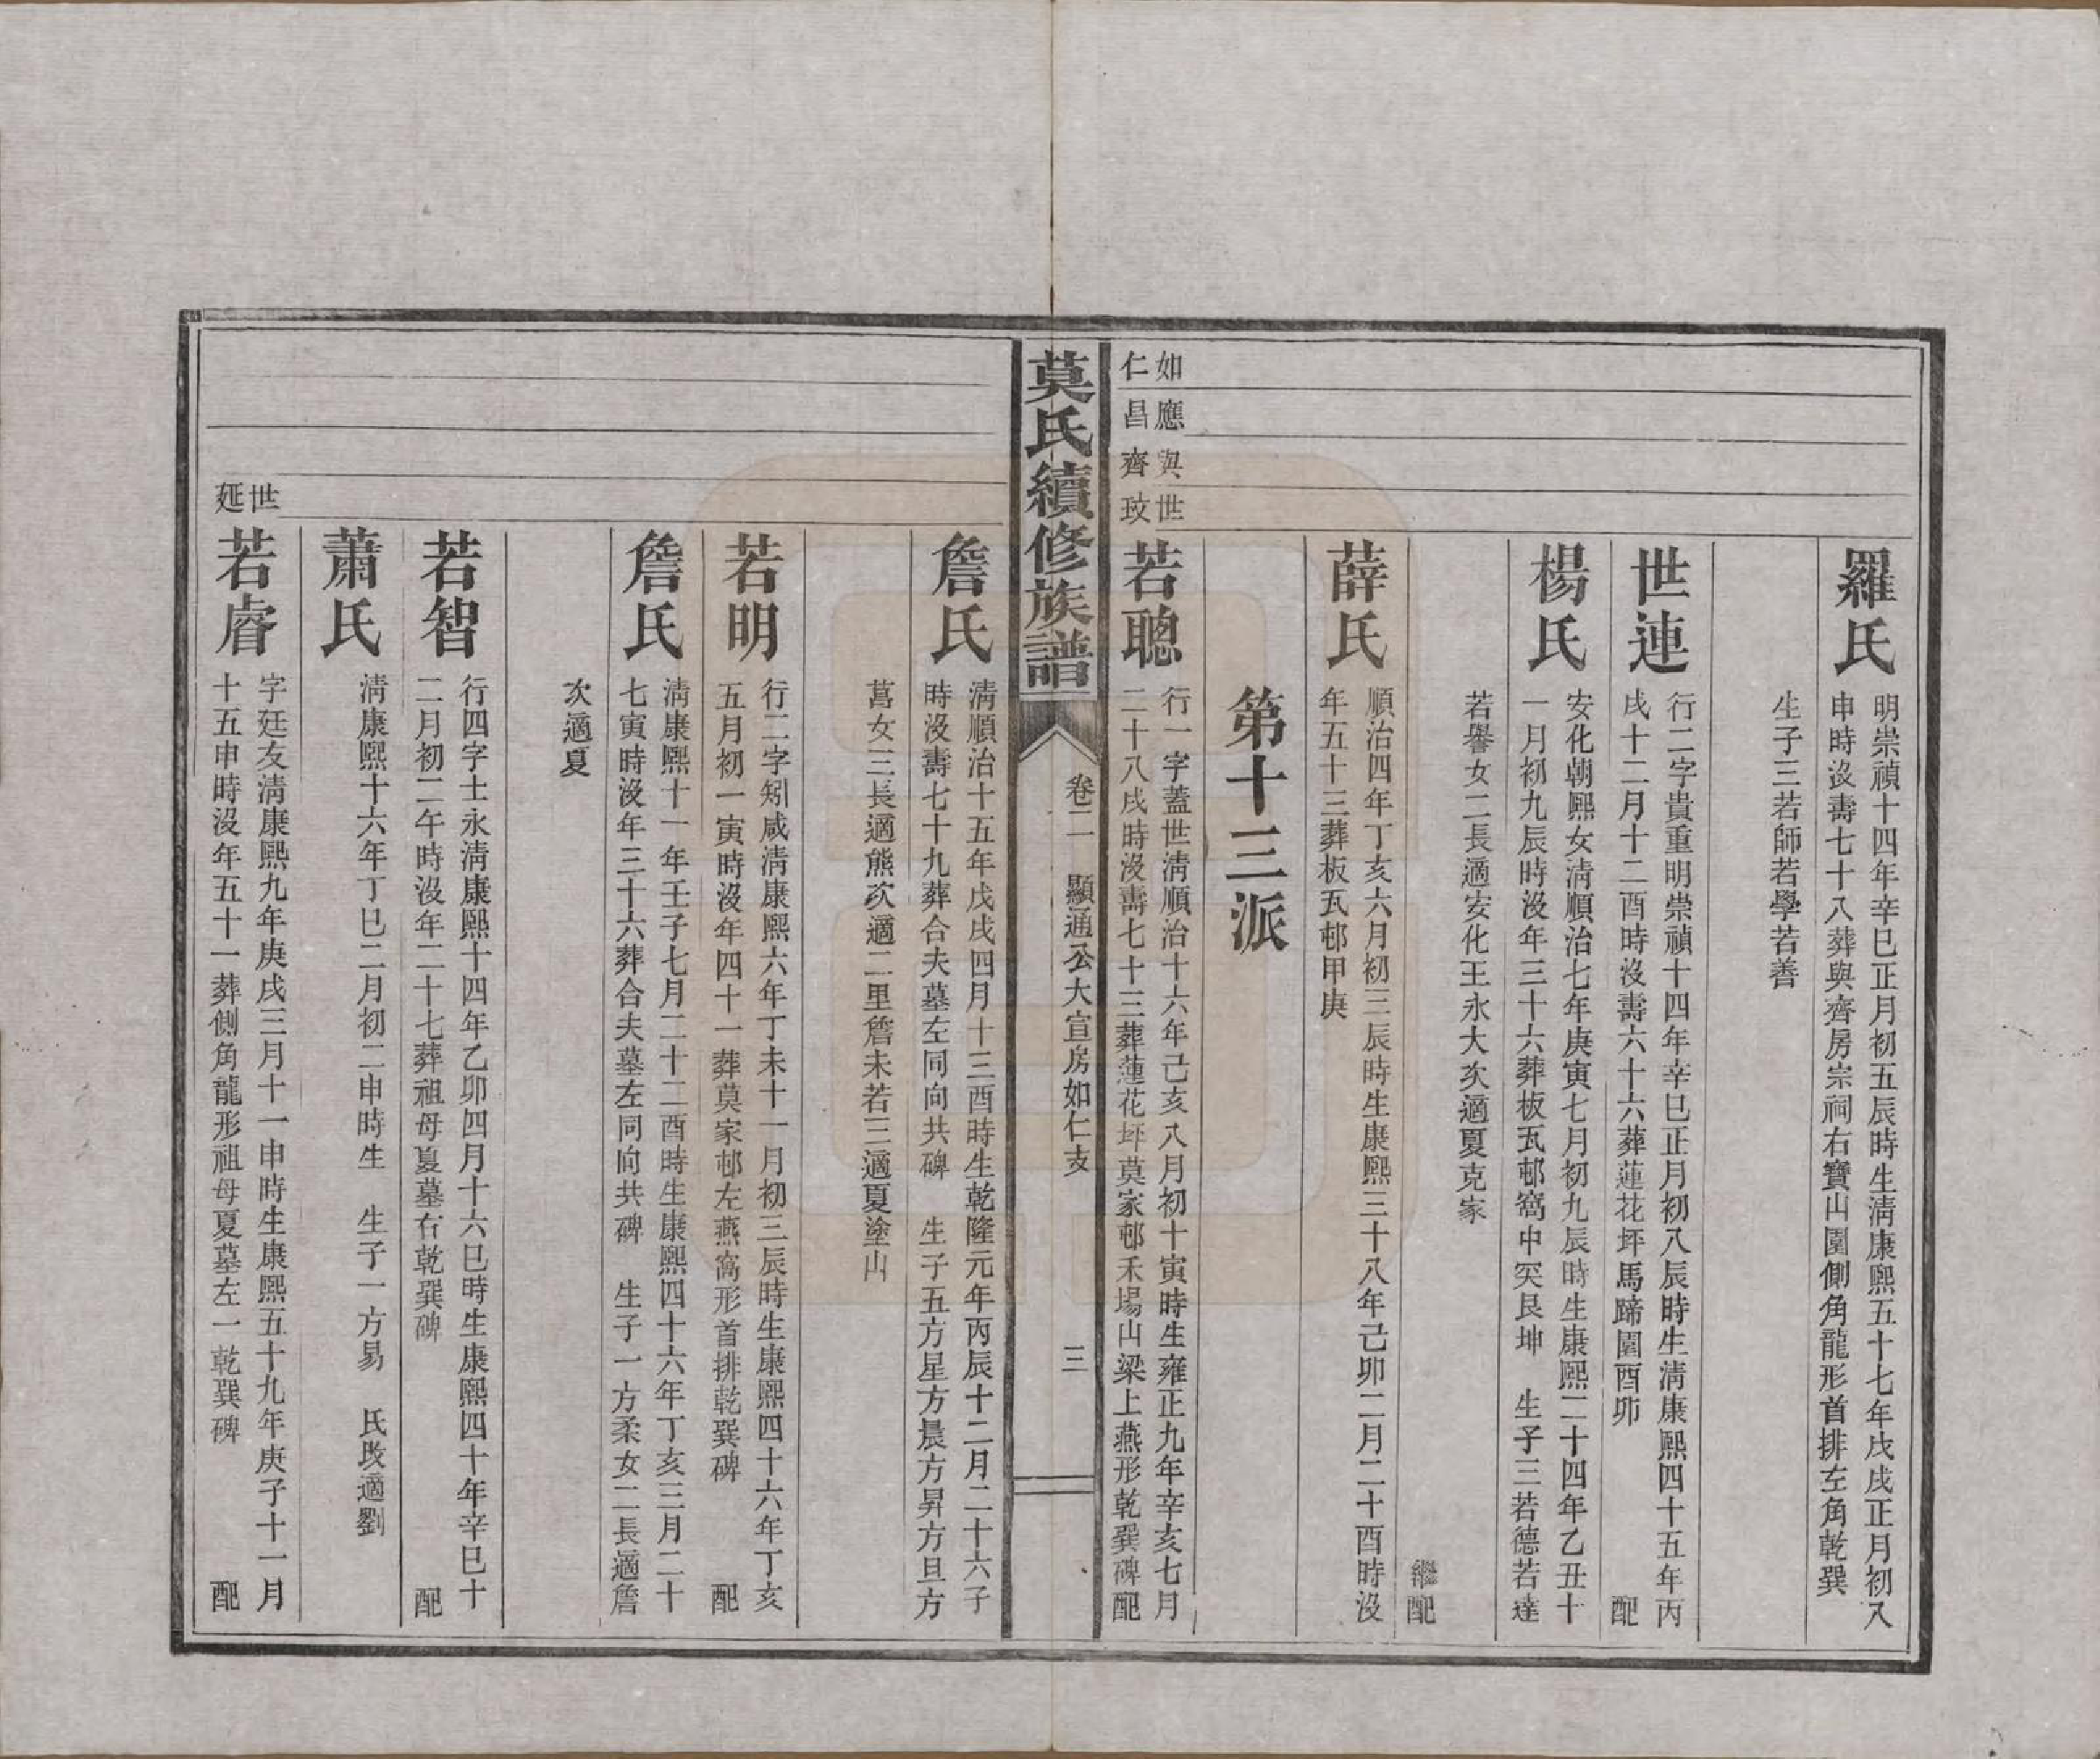 羅氏
明崇禎十四年辛巳正月初五辰時生淸康熙五十七年戊戌正月初八
申時沒壽七十八葬與齊房宗祠右寶山圍側角龍形首排左角乾巽
生子三若師若學若善
世連
行二字貴重明崇禎十四年辛巳正月初八辰時生淸康熙四十五年丙
戌十二月十二酉時沒壽六十六葬蓮花坪馬蹄圍酉卯 配
楊氏
安化朝熙女淸順治七年庚寅七月初九辰時生康熙二十四年乙丑十
一月初九辰時沒年三十六葬板瓦邨窩中突艮坤 生子三若德若達
若譽女二長適安化王永大次適夏克家
繼配
薛氏
順治四年丁亥六月初三辰時生康熙三十八年己卯二月二十酉時沒
年五十三葬板瓦邨甲庚
第十三派
如應與世
仁昌齊玟
若聰
行一字蓋世淸順治十六年己亥八月初十寅時生雍正九年辛亥七月
二十八戌時沒壽七十三葬蓮花坪莫家邨禾場山梁上燕形乾巽碑配
莫氏續修族譜
卷二 顯通公大宣房如仁支
三
詹氏
淸順治十五年戊戌四月十三酉時生乾隆元年丙辰十二月二十六子
時沒壽七十九葬合夫墓左同向共碑 生子五方星方晨方昇方旦方
菖女三長適熊次適二里詹未若三適夏塗山
若明
行二字矧咸淸康熙六年丁未十一月初三辰時生康熙四十六年丁亥
五月初一寅時沒年四十一葬莫家邨左燕窩形首排乾巽碑 配
詹氏
淸康熙十一年壬子七月二十二酉時生康熙四十六年丁亥三月二十
七寅時沒年三十六葬合夫墓左同向共碑 生子一方柔女二長適詹
次適夏
若智
行四字士永淸康熙十四年乙卯四月十六巳時生康熙四十年辛巳十
二月初二午時沒年二十七葬祖母夏墓右乾巽碑 配
蕭氏
淸康熙十六年丁巳二月初二申時生 生子一方易 氏改適劉
世
延
若睿
字廷友淸康熙九年庚戌三月十一申時生康熙五十九年庚子十一月
十五申時沒年五十一葬側角龍形祖母夏墓左一乾巽碑 配